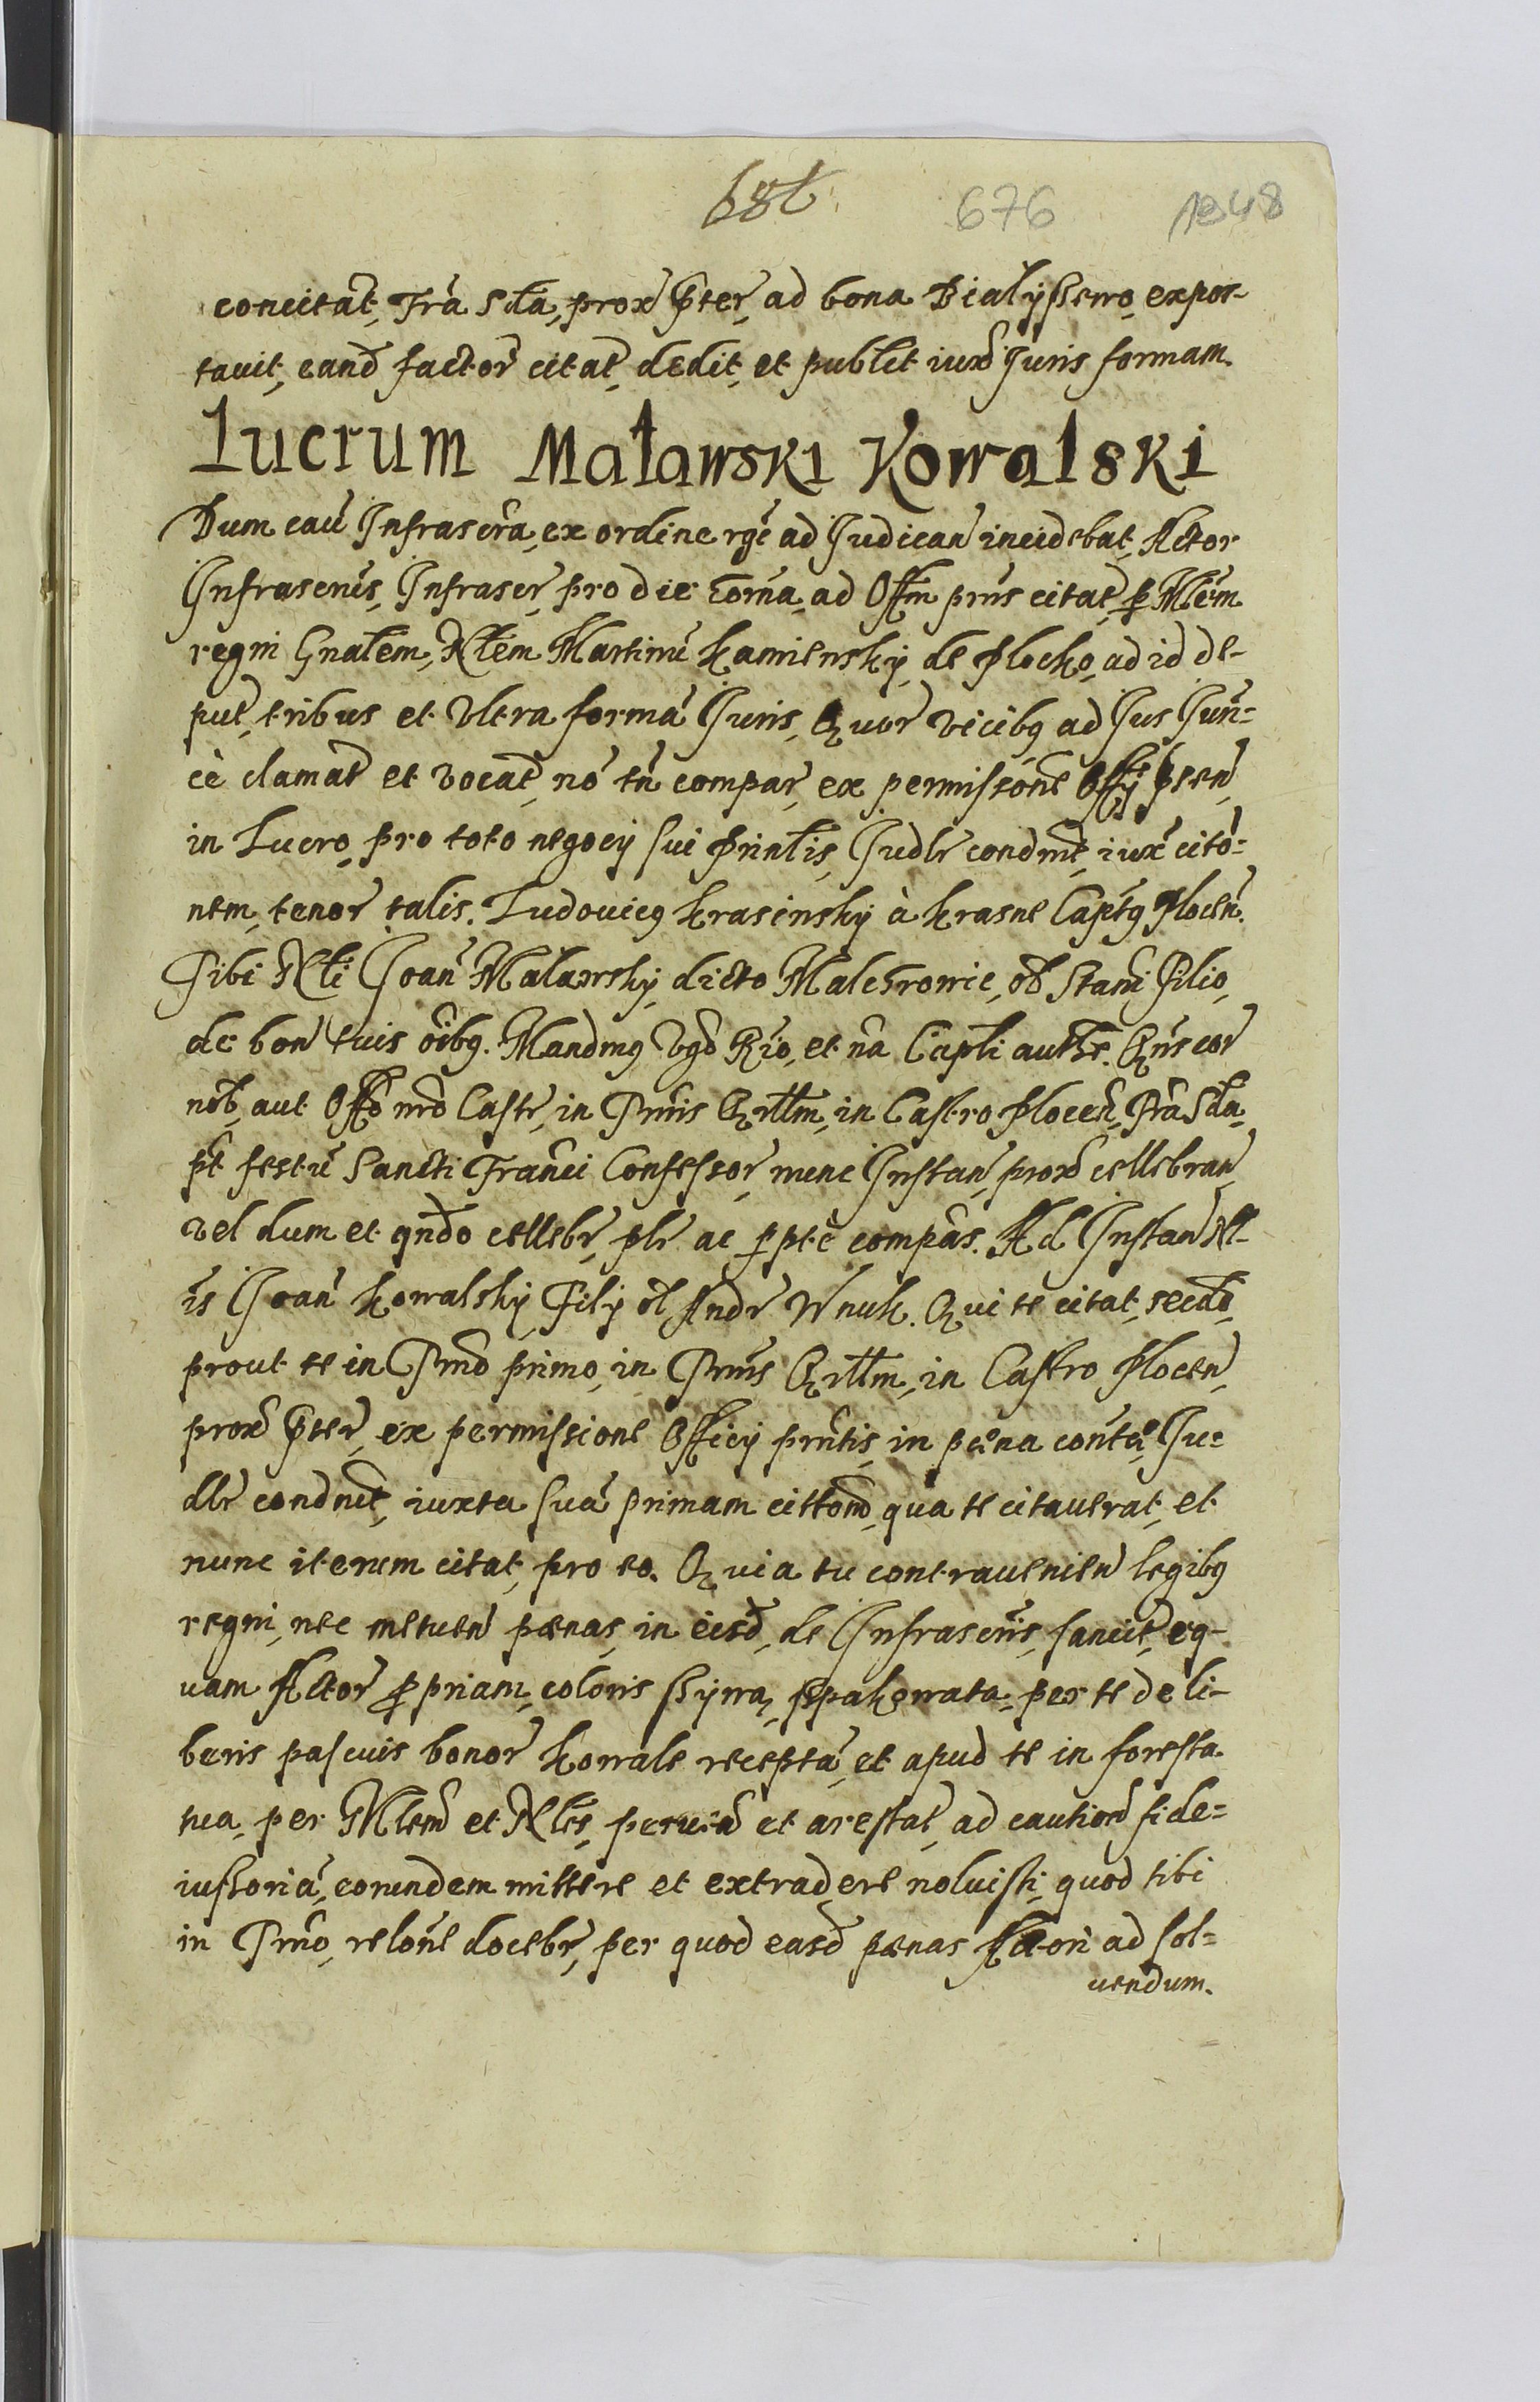 681 676 1348
concitat, Fra Sda, prox pter, ad bona Bialyssewo, expor-
tavit, eand factor citat, dedit, et publit iux Juris formam.
Lucrum Maławski Kowalski
Dum cau Infrascra, ex ordine rge ad Judican incidebat, Actor
Infrascrus, Infrascr, pro die corna, ad Offm prns citat, p Mlem
regni Gnalem, Nlem Martinu Kamiensky de Plocko, ad id de-
put, tribus et Ultra forma Juris, Quor vicibq ad Jus Jun-
ce clamat et vocat, no tn compar, ex permissione Offy psen,
in Lucro, pro toto negocy sui prinlis, Judlr condmt, iux cito-
nem, tenor talis. Ludovicq Krasinsky à Krasne Captq Plocen.
Tibi Nli Joan Maławsky, dicto Malchrowic, ol Stani filio,
de bon tuis oibq. Mandmq Vgo Rio, et na Capli authe. Qns cor
nob, aut Offo nro Castr, in Trnis Qrllm, in Castro Plocen, Fra Sda,
pt festu Sancti Franci Confessor, nunc Instan, prox cellebran,
vel dum et qndo cellebr, plr ac ppte compas. Ad Instan Nl-
is Joan Kowalsky, Fily ol Andr Wnuk. Qui te citat, secdo,
prout te in Trno primo, in Trnis Qrllm, in Castro Plocen,
prox pter, ex permissione Officy prntis, in pæna contu, Ju-
dlr condnt, iuxta sua primam cittom, qua te citaverat, et
nunc iterum citat, pro eo. Quia tu contravenien legibq
regni, nec metuen pænas, in eisd, de Infrascris, sancit, eq-
uam Actor ppriam, coloris ssywa, szpakowata, per te de li-
beris pascuis bonor Kowale recepta, et apud te in foresta
tua, per Mlem et Nles, et arestat, ad cautiom fide-
iussoria, eorundem mittere et extradere noluisti, quod tibi
in Trno, relone docebr, per quod easd pænas Actori ad sol-
uendum.